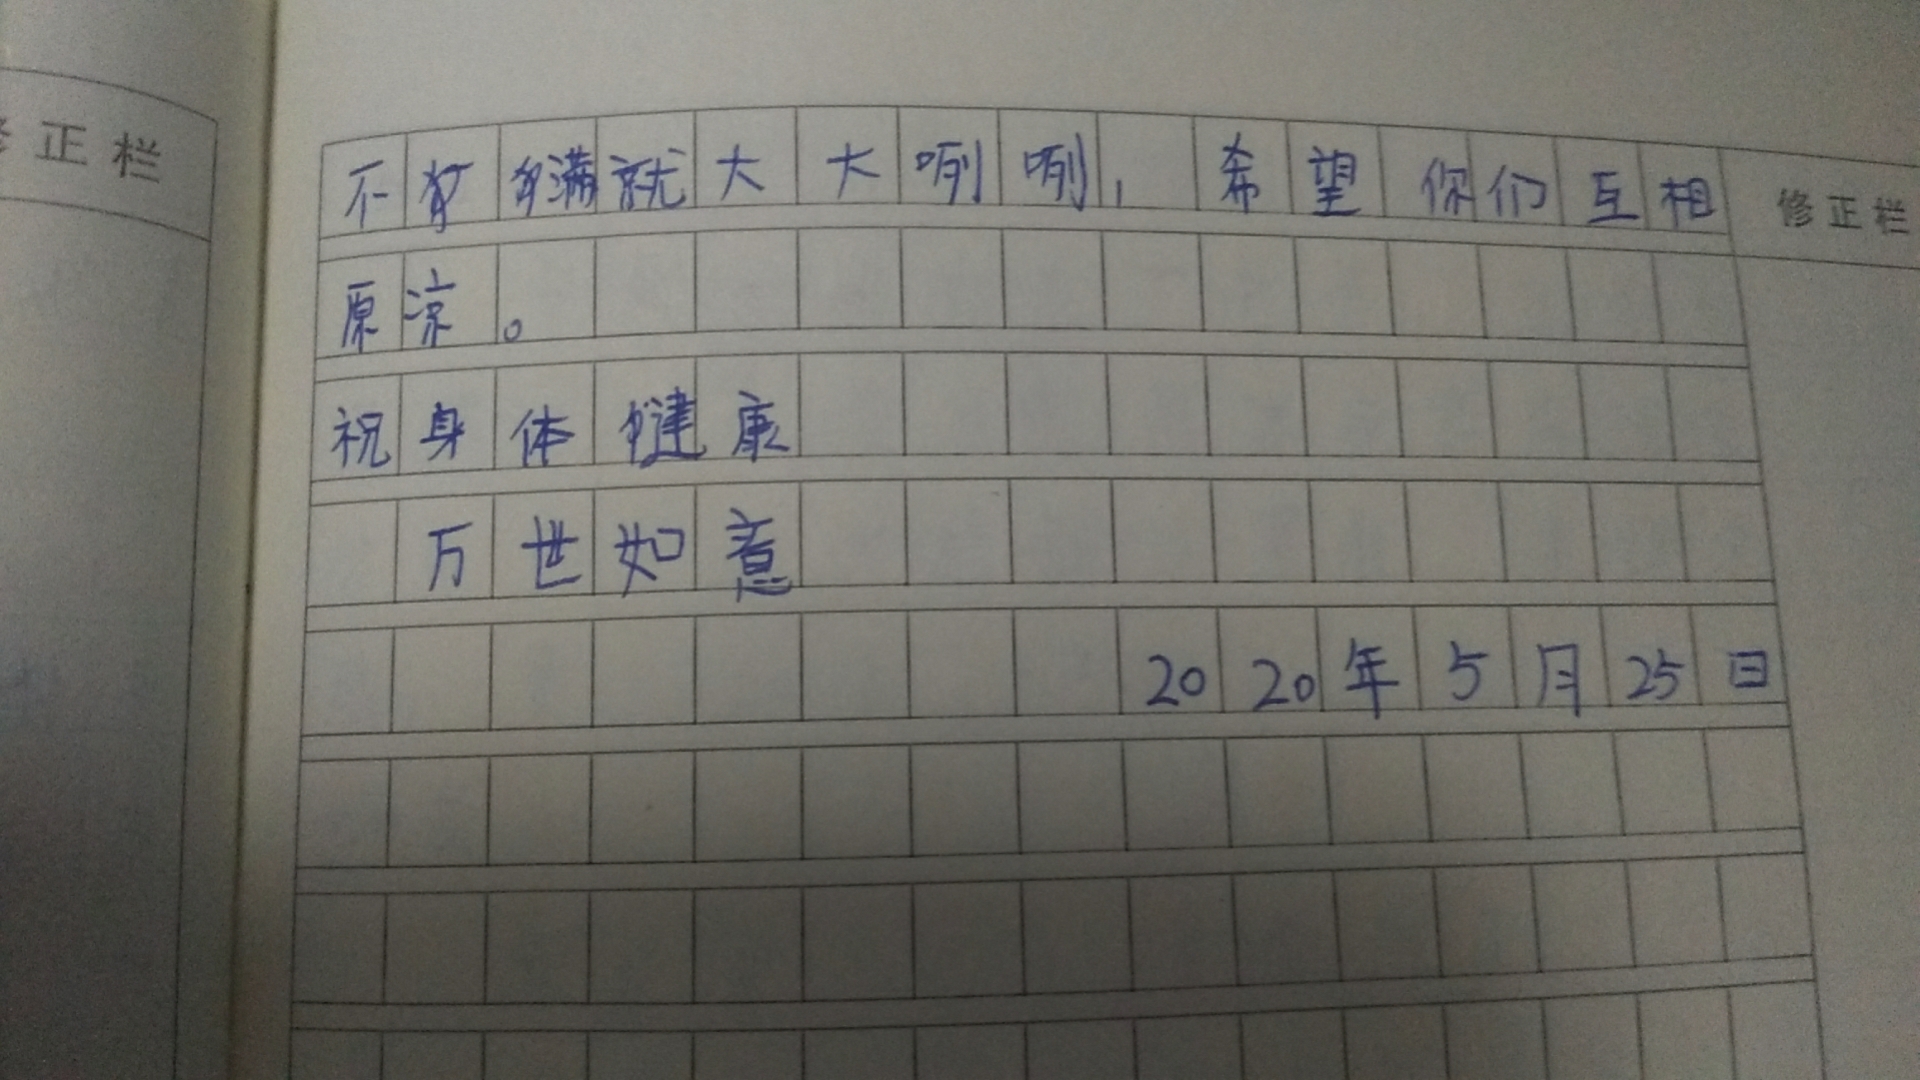 修正栏
不 满就大大咧咧，希望你们互相
修正栏
原凉。
祝身体健康
万世如意
2020年5月25日